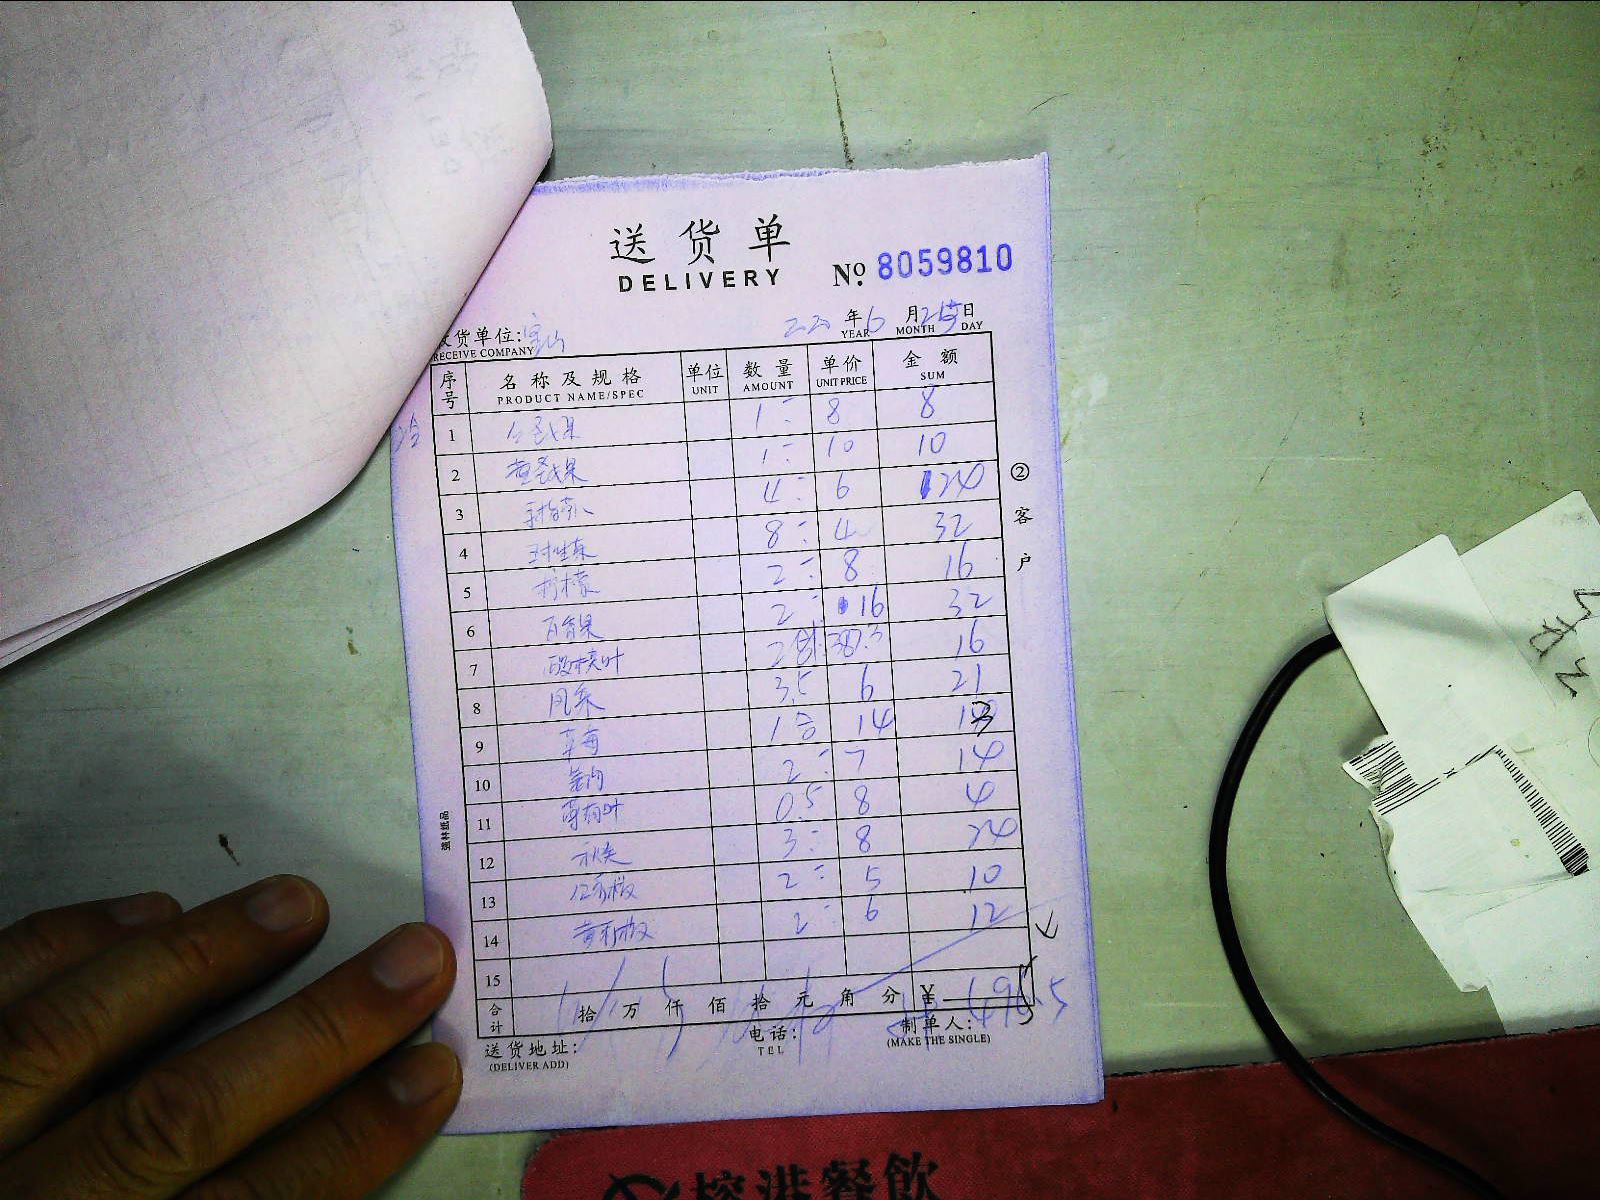 送货单
DELIVERY
No. 8059810
年 6 月 25 日
YEAR MONTH DAY
收货单位: 宝山
RECEIVE COMPANY
序号 名称及规格 单位 数量 单价 金额
PRODUCT NAME/SPEC UNIT AMOUNT UNIT PRICE SUM
1 1 8 8
2 黄圣女果 1 10 10
3 4 6 24
4 8 4 32
5 柠檬 2 8 16
6 百香果 2 16 32
7 2 16
8 3.5 6 21
9 草莓 1合 14
10 2 7 14
11 薄荷叶 0.5 8 4
12 秋葵 3 8 24
13 红彩椒 2 5 10
14 黄彩椒 2 6 12
15
合计 拾 万 仟 佰 拾 元 角 分 ¥
送货地址: 电话: 制单人:
(DELIVER ADD) TEL (MAKE THE SINGLE)
②客户
强林纸品
控港餐飲